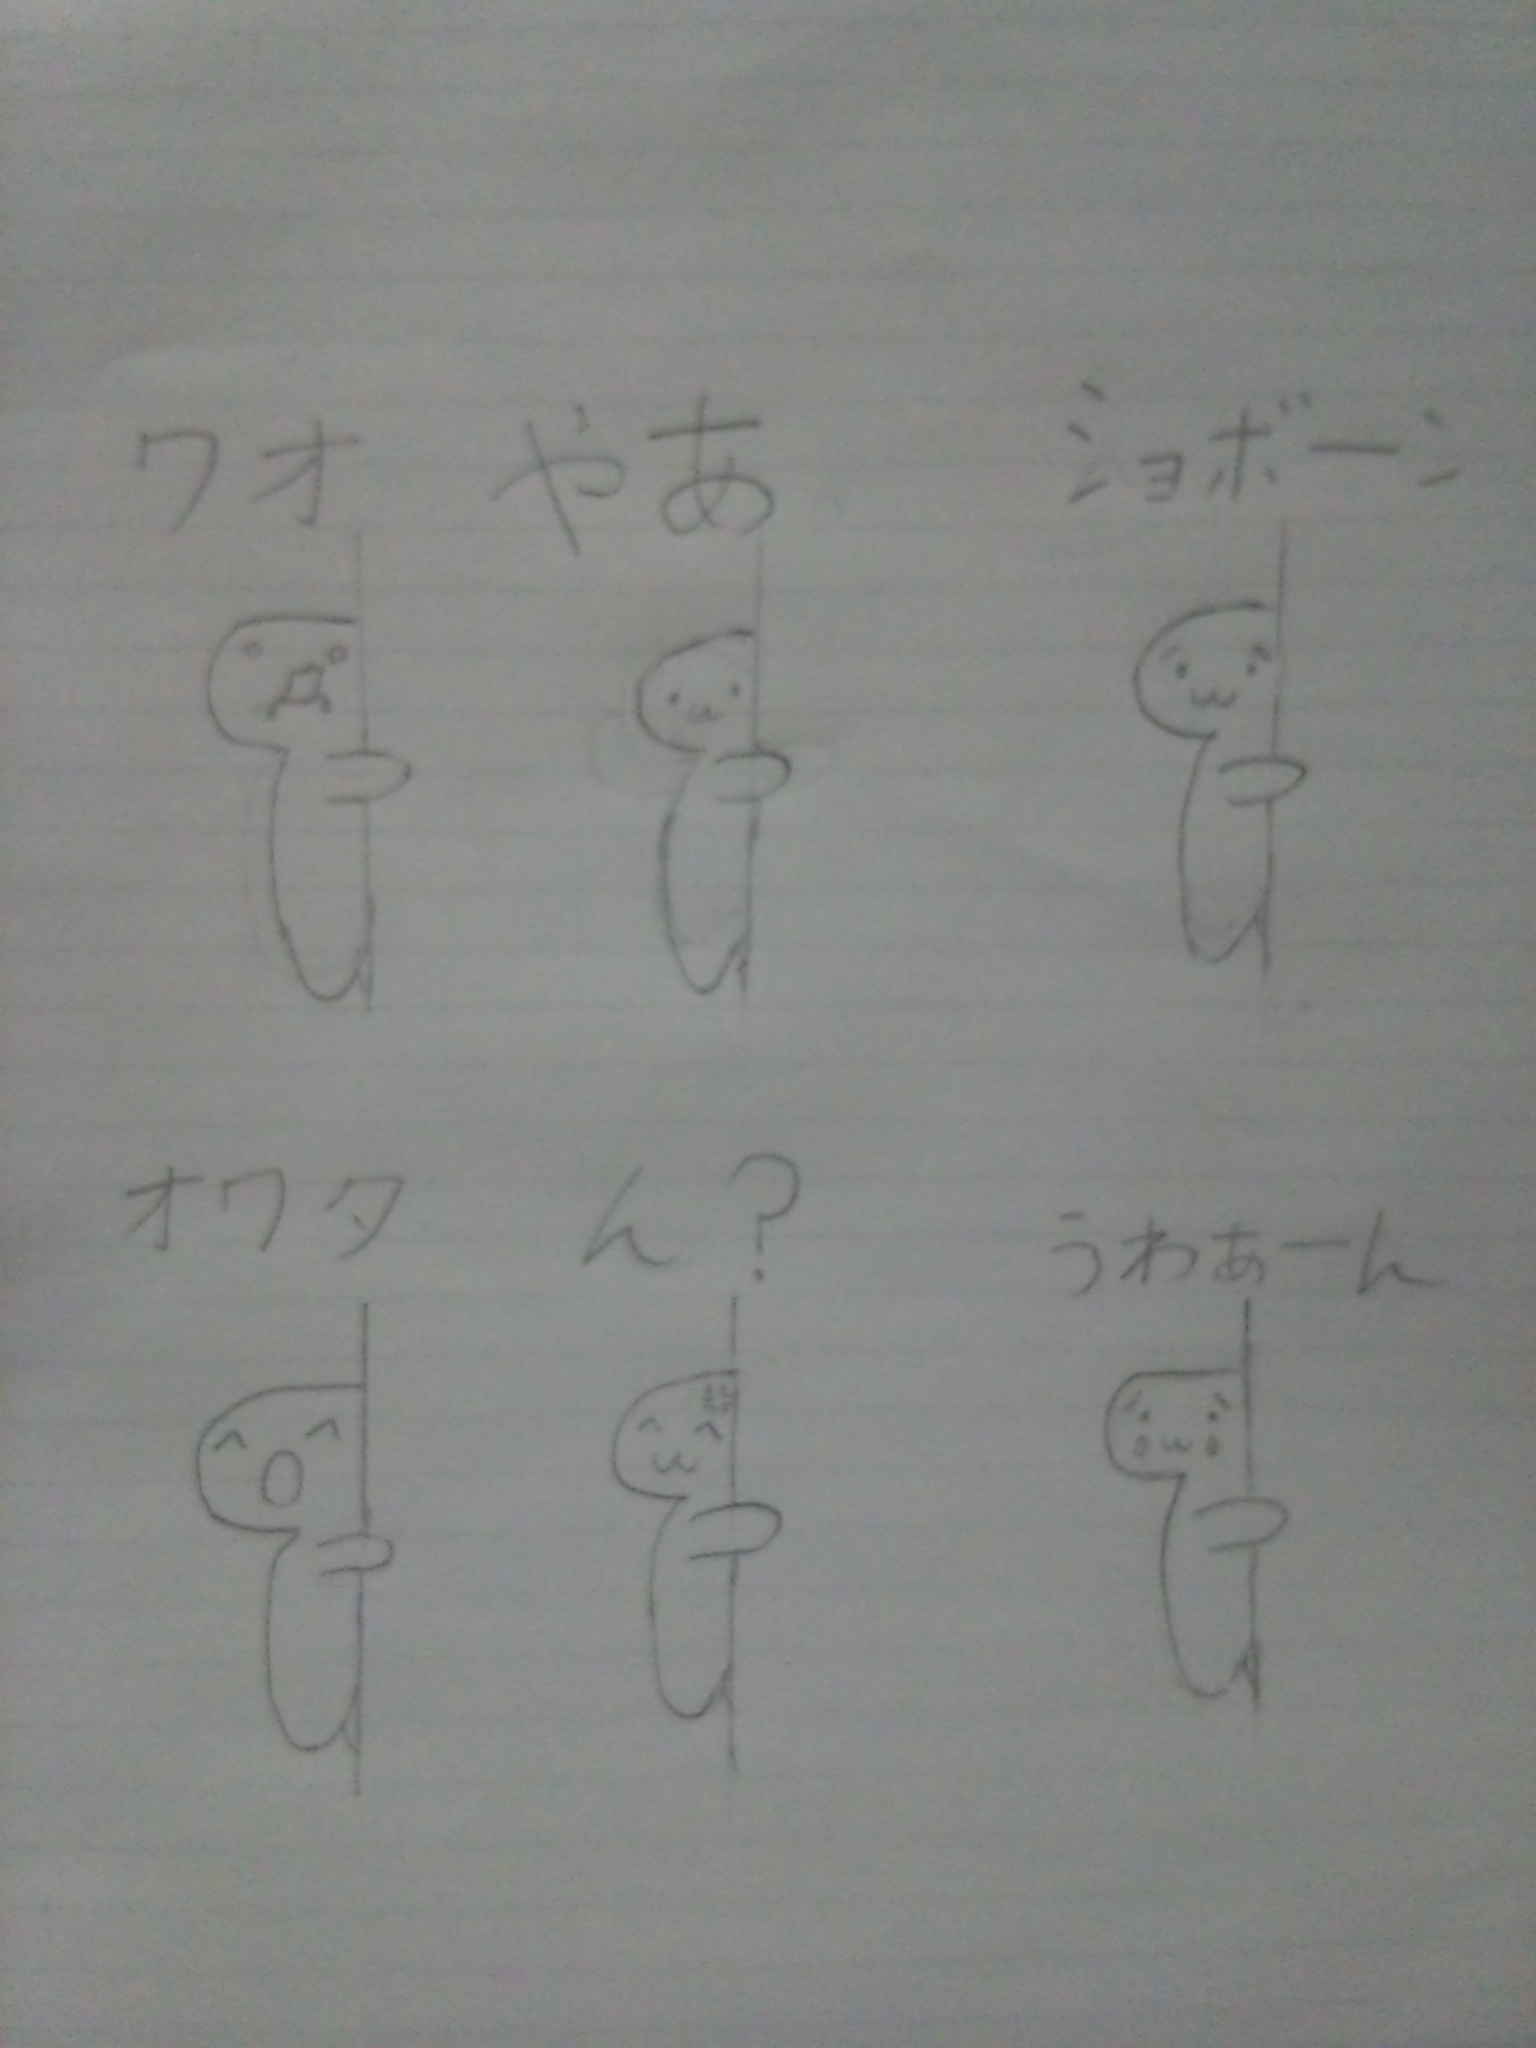 ワオ やあ ショボーン
オワタ ん? うわぁーん